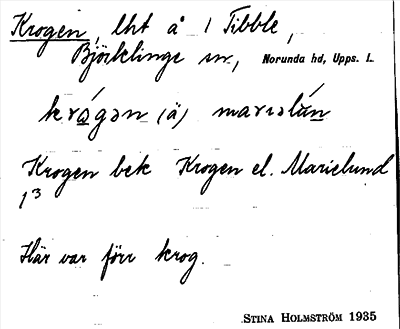 Krogen, lht å 1 Tibble,
Björklinge sn, Norunda hd, Upps. L.
krågən (ä) mariəlún
Krogen bek Krogen el. Marielund
1³
Här var förr krog.
STINA HOLMSTRÖM 1935